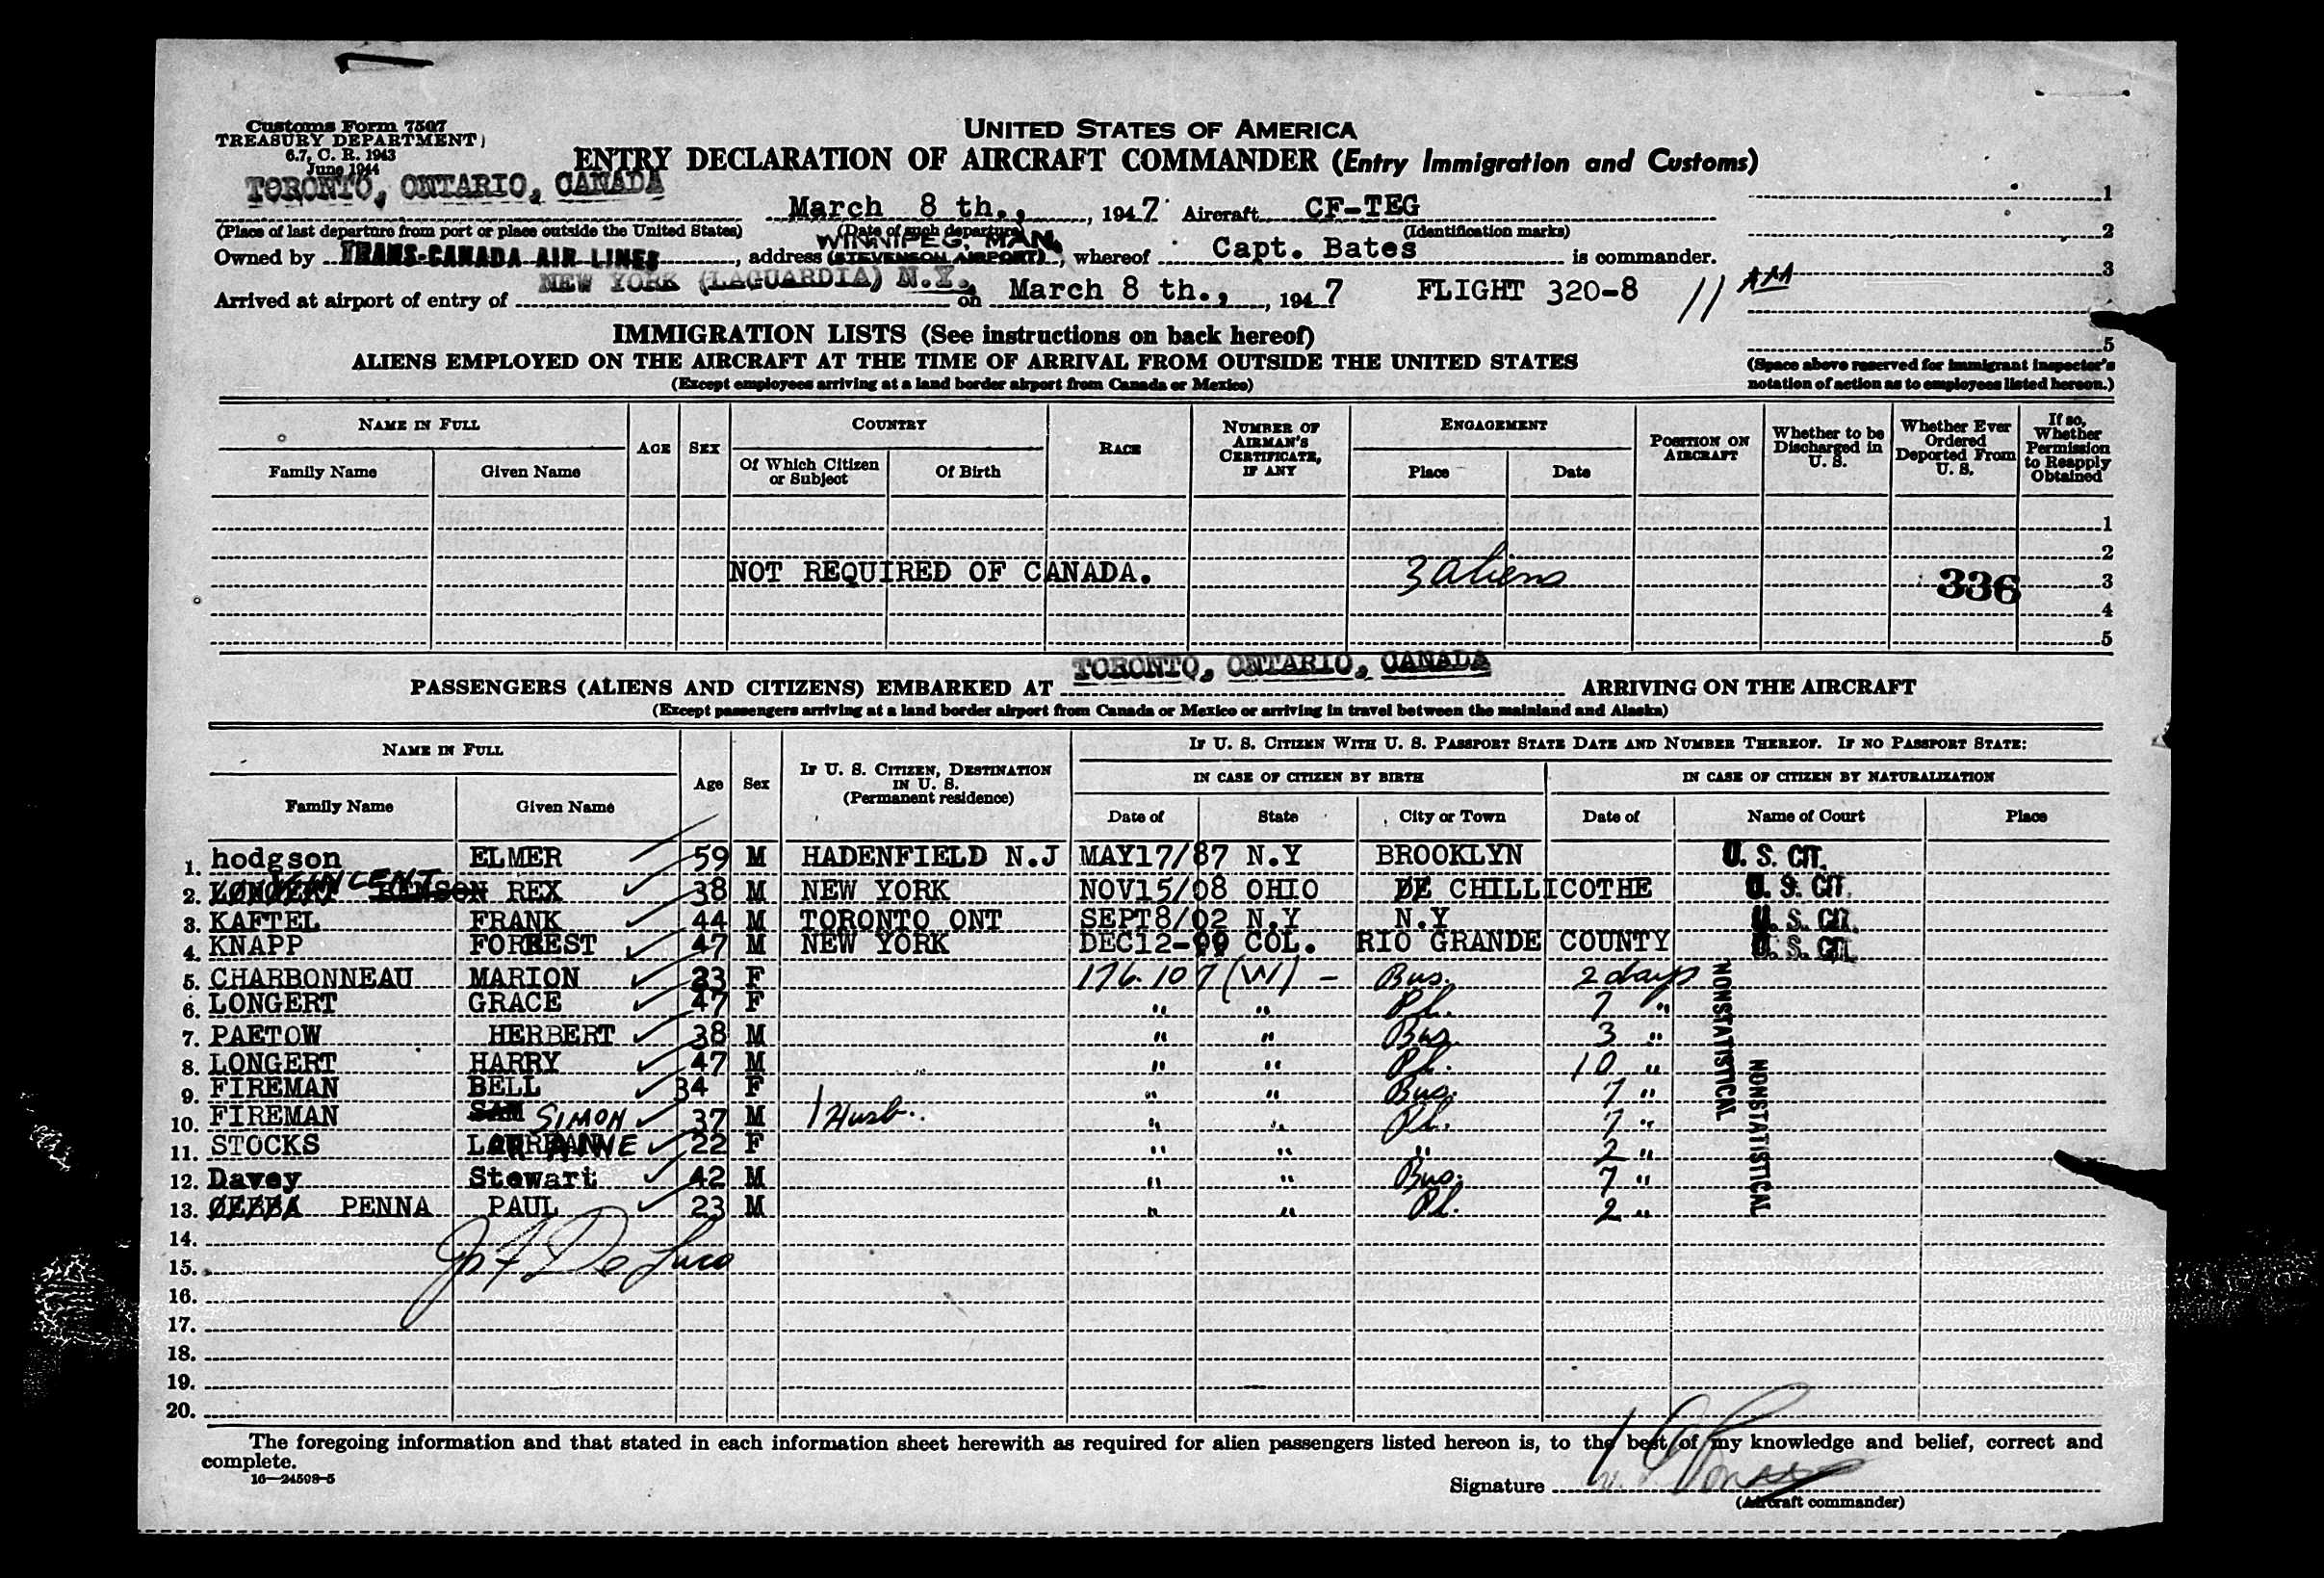 Customs Form 7507
TREASURY DEPARTMENT
6.7, C. R. 1943
June 1944
UNITED STATES OF AMERICA
ENTRY DECLARATION OF AIRCRAFT COMMANDER (Entry Immigration and Customs)
TORONTO, ONTARIO, CANADA
March 8 th., , 1947 Aircraft CF-TEG
1
(Place of last departure from port or place outside the United States) (Date of such departure) (Identification marks)
2
WINNIPEG, MAN.
Owned by TRANS-CANADA AIR LINES, address (STEVENSON AIRPORT), whereof Capt. Bates is commander.
3
Arrived at airport of entry of NEW YORK (LAGUARDIA) N.Y. on March 8 th., , 1947 FLIGHT 320-8 11 AM
5
(Space above reserved for immigrant inspector's
notation of action as to employees listed hereon.)
IMMIGRATION LISTS (See instructions on back hereof)
ALIENS EMPLOYED ON THE AIRCRAFT AT THE TIME OF ARRIVAL FROM OUTSIDE THE UNITED STATES
(Except employees arriving at a land border airport from Canada or Mexico)
NAME IN FULL
Family Name Given Name
AGE SEX
COUNTRY
Of Which Citizen or Subject Of Birth
RACE
NUMBER OF AIRMAN'S CERTIFICATE, IF ANY
ENGAGEMENT
Place Date
POSITION ON AIRCRAFT
Whether to be Discharged in U. S.
Whether Ever Ordered Deported From U. S.
If so, Whether Permission to Reapply Obtained
1
2
NOT REQUIRED OF CANADA. 3 aliens 336 3
4
5
PASSENGERS (ALIENS AND CITIZENS) EMBARKED AT TORONTO, ONTARIO, CANADA ARRIVING ON THE AIRCRAFT
(Except passengers arriving at a land border airport from Canada or Mexico or arriving in travel between the mainland and Alaska)
NAME IN FULL
Family Name Given Name
Age Sex
IF U. S. CITIZEN, DESTINATION IN U. S.
(Permanent residence)
IF U. S. CITIZEN WITH U. S. PASSPORT STATE DATE AND NUMBER THEREOF. IF NO PASSPORT STATE:
IN CASE OF CITIZEN BY BIRTH IN CASE OF CITIZEN BY NATURALIZATION
Date of State City or Town Date of Name of Court Place
1. hodgson ELMER 59 M HADENFIELD N.J MAY17/87 N.Y BROOKLYN U. S. CIT.
2. LONGERT VINCENT REX 38 M NEW YORK NOV15/08 OHIO CHILLICOTHE U. S. CIT.
3. KAFTEL FRANK 44 M TORONTO ONT SEPT8/02 N.Y N.Y U. S. CIT.
4. KNAPP FORREST 47 M NEW YORK DEC12-99 COL. RIO GRANDE COUNTY U. S. CIT.
5. CHARBONNEAU MARION 23 F 176.107 (W) - Bus. 2 days NONSTATISTICAL
6. LONGERT GRACE 47 F " " Pl. 7 "
7. PAETOW HERBERT 38 M " " Bus. 3 "
8. LONGERT HARRY 47 M " " Pl. 10 " NONSTATISTICAL
9. FIREMAN BELL 34 F " " Bus. 7 "
10. FIREMAN SAM SIMON 37 M 1 Husb. " " Pl. 7 "
11. STOCKS LAURANNE 22 F " " " 2 "
12. Davey Stewart 42 M " " Bus. 7 "
13. PENNA PAUL 23 M " " Pl. 2 "
14.
15.
16.
17.
18.
19.
20.
The foregoing information and that stated in each information sheet herewith as required for alien passengers listed hereon is, to the best of my knowledge and belief, correct and
complete.
16—24598-5
Signature
(Aircraft commander)